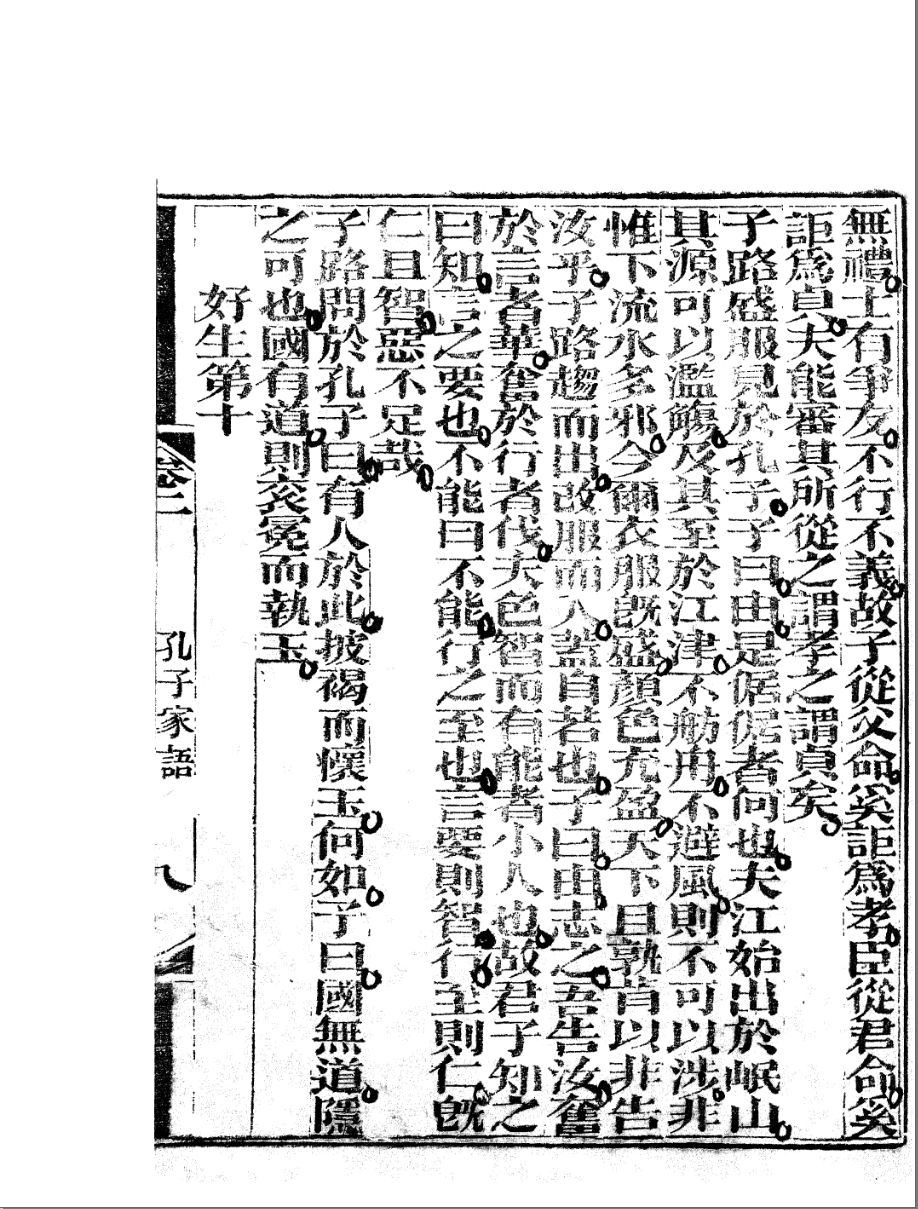 無禮士有爭友不行不義故子從父命奚詎爲孝臣從君命奚
詎爲貞夫能審其所從之謂孝之謂貞矣
子路盛服見於孔子子曰由是倨倨者何也夫江始出於岷山
其源可以濫觴及其至於江津不舫舟不避風則不可以涉非
惟下流水多邪今爾衣服旣盛顏色充盈天下且孰肯以非告
汝乎子路趨而出改服而入蓋自若也子曰由志之吾告汝奮
於言者華奮於行者伐夫色智而有能者小人也故君子知之
曰知言之要也不能曰不能行之至也言要則智行至則仁旣
仁且智惡不足哉
子路問於孔子曰有人於此披褐而懷玉何如子曰國無道隱
之可也國有道則衮冕而執玉
好生第十
卷二 孔子家語 八